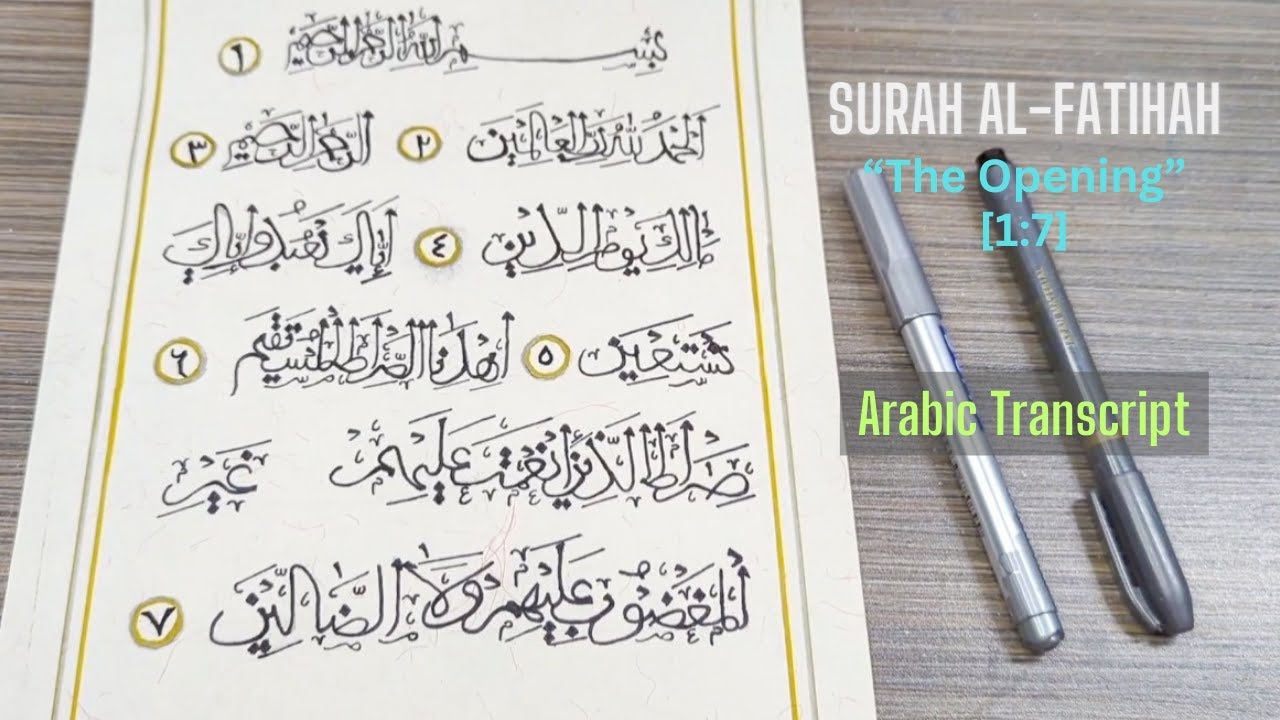 بِسْمِ اللَّهِ الرَّحْمَٰنِ الرَّحِيمِ ١
الْحَمْدُ لِلَّهِ رَبِّ الْعَالَمِينَ ٢ الرَّحْمَٰنِ الرَّحِيمِ ٣
مَالِكِ يَوْمِ الدِّينِ ٤ إِيَّاكَ نَعْبُدُ وَإِيَّاكَ
نَسْتَعِينُ ٥ اهْدِنَا الصِّرَاطَ الْمُسْتَقِيمَ ٦
صِرَاطَ الَّذِينَ أَنْعَمْتَ عَلَيْهِمْ غَيْرِ
الْمَغْضُوبِ عَلَيْهِمْ وَلَا الضَّالِّينَ ٧
SURAH AL-FATIHAH
“The Opening”
[1:7]
Arabic Transcript